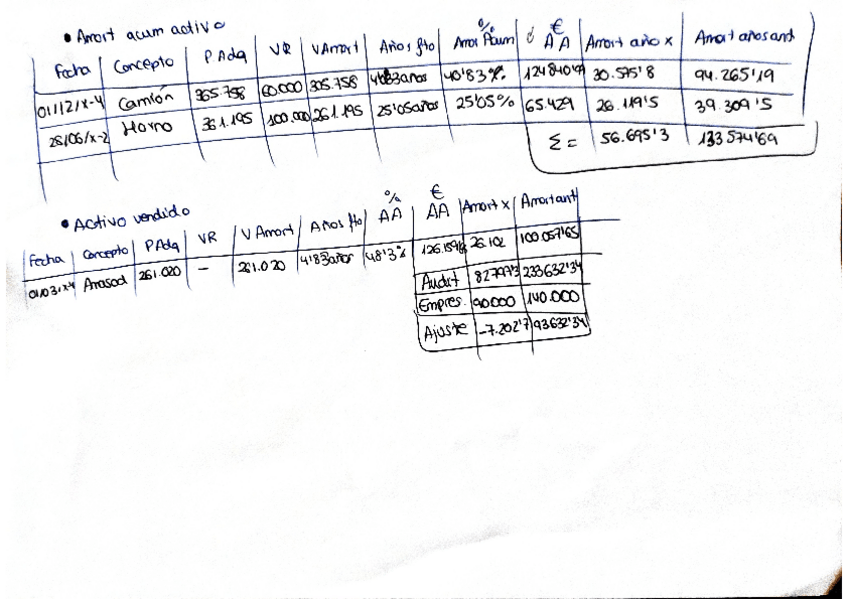 • Amort acum activo
Fecha Concepto P Adq VR V Amort Años fto % Amor Acum € AA Amort año x Amort años ant
01/12/x-4 Camión 365.758 60.000 305.758 años 40'83% 124840'99 30.575'8 94.265'19
28/06/x-2 Horno 361.195 100.000 261.195 25'05 años 25'05% 65.429 26.119'5 39.309'5
Σ = 56.695'3 133574'69
• Activo vendido
Fecha Concepto P Adq VR V Amort Años fto % AA € AA Amort x Amort ant
01/03/x-4 Amasad 261.020 - 261.020 4'83 años 48'3% 26.102 100.057'65
Audit 82797'3 233632'34
Empres. 90000 140.000
Ajuste -7.202'7 93632'34